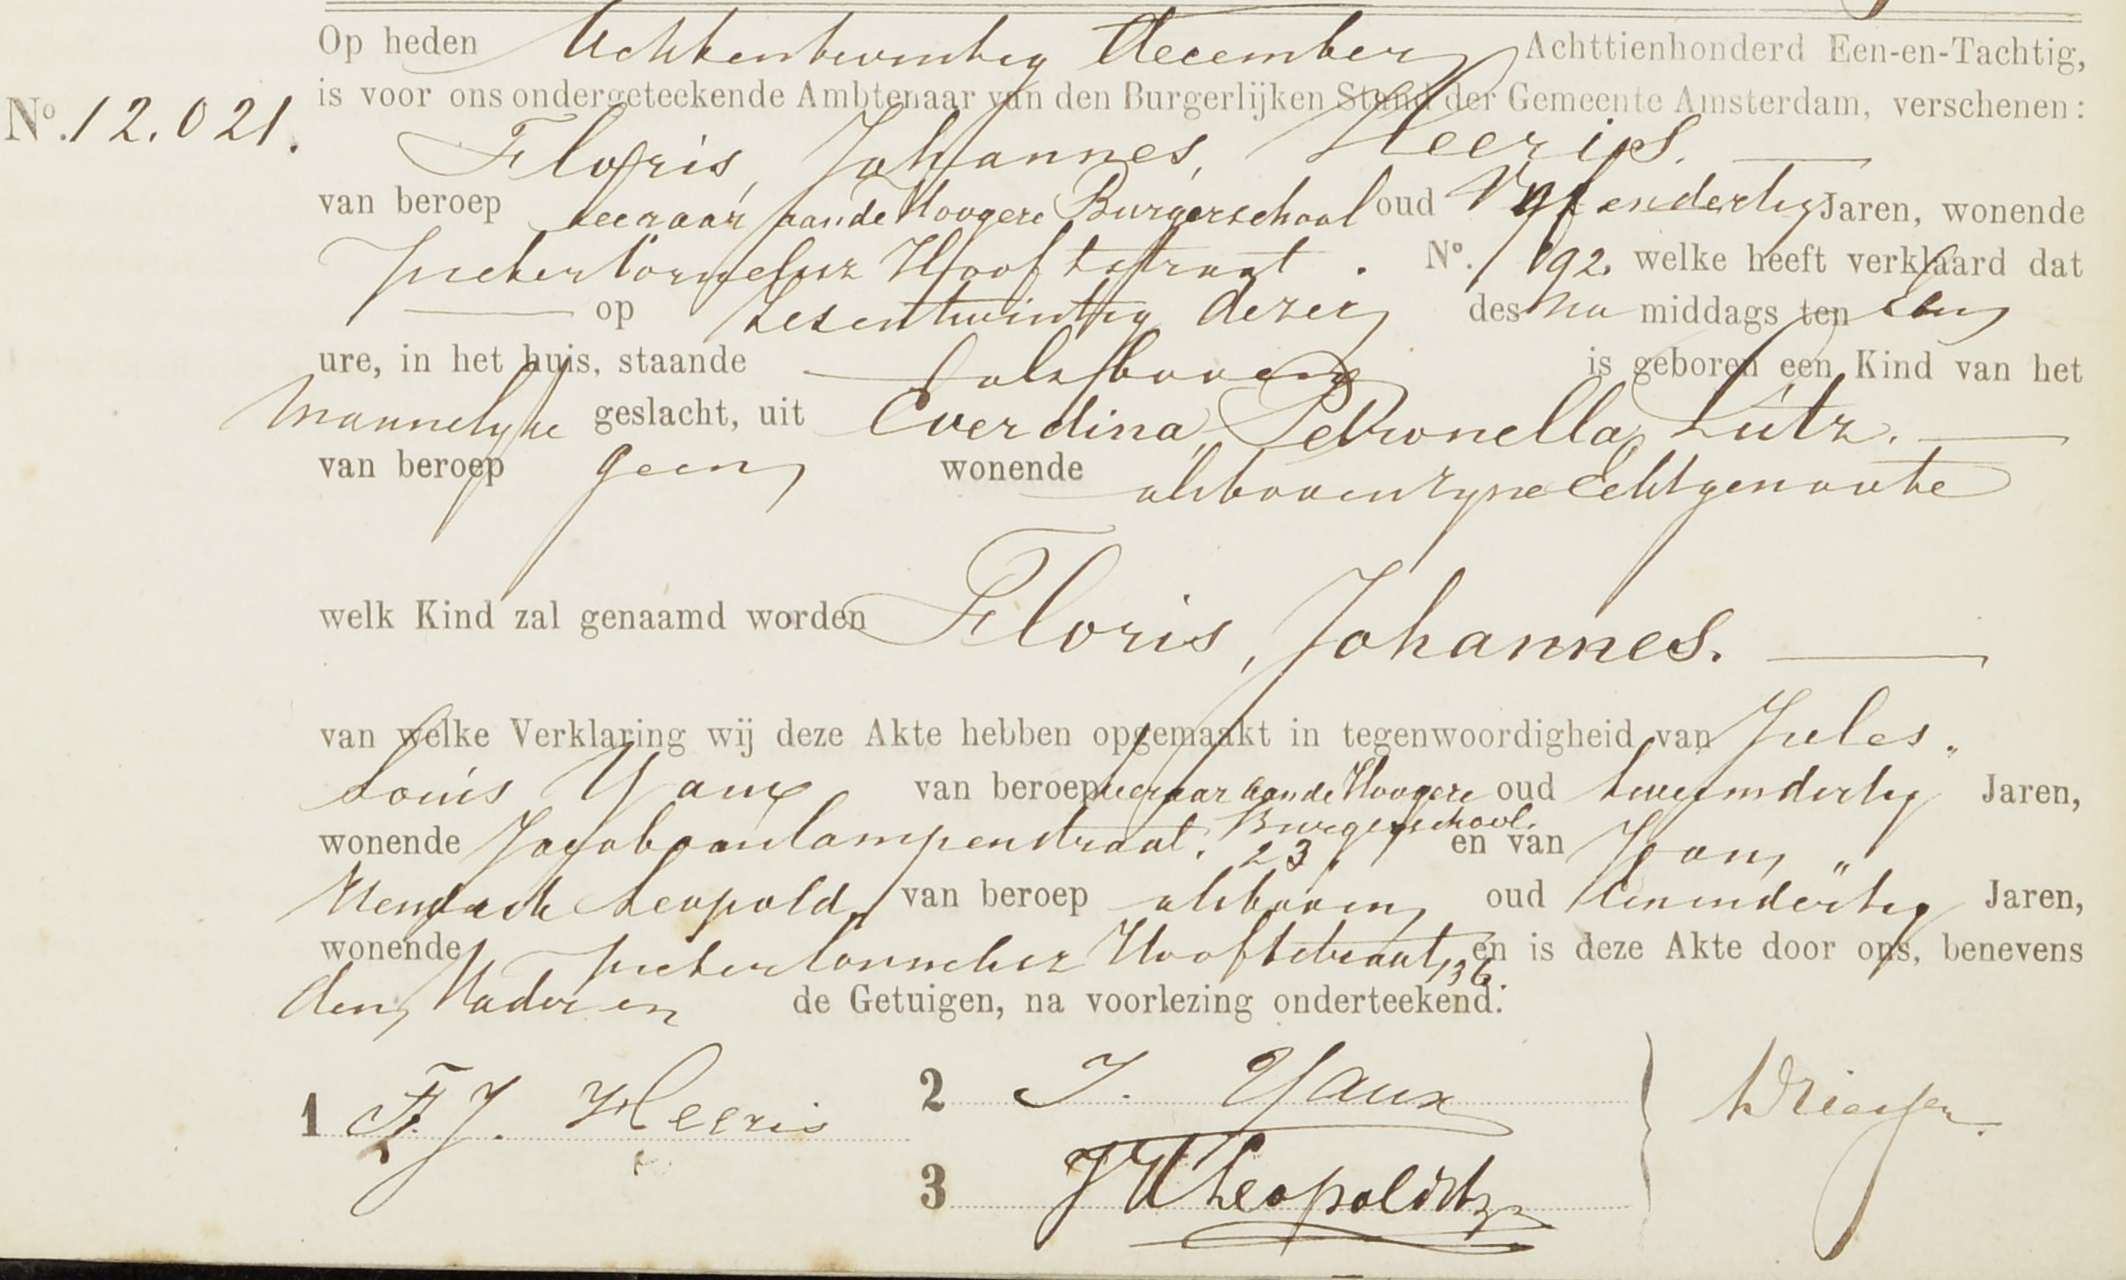 Op heden Achtentwintig December Achttienhonderd Een-en-Tachtig,
No. 12.021. is voor ons ondergeteekende Ambtenaar van den Burgerlijken Stand der Gemeente Amsterdam, verschenen:
Floris, Johannes, Heeris.
van beroep Leeraar aan de Hoogere Burgerschool oud Vyfendertig Jaren, wonende
Pieter Cornelisz Hooftstraat. No. 192. welke heeft verklaard dat
op Zesentwintig dezer des na middags ten een
ure, in het huis, staande alsboven is geboren een Kind van het
Mannelyke geslacht, uit Everdina, Petronella, Lutz.
van beroep geen wonende alsboven zyne Echtgenoote
welk Kind zal genaamd worden Floris, Johannes.
van welke Verklaring wij deze Akte hebben opgemaakt in tegenwoordigheid van Jules
Louis Yaux van beroep leeraar aan de Hoogere oud tweeendertig Jaren,
Burgerschool.
wonende Jacob van Campenstraat. 23. en van Joan
Hendrik Leopold van beroep alsboven oud eenendertig Jaren,
wonende Pieter Cornelisz Hooftstraat 136. en is deze Akte door ons, benevens
den Vader en de Getuigen, na voorlezing onderteekend.
1 F. J. Heeris 2 J. Yaux
3 J H Leopold